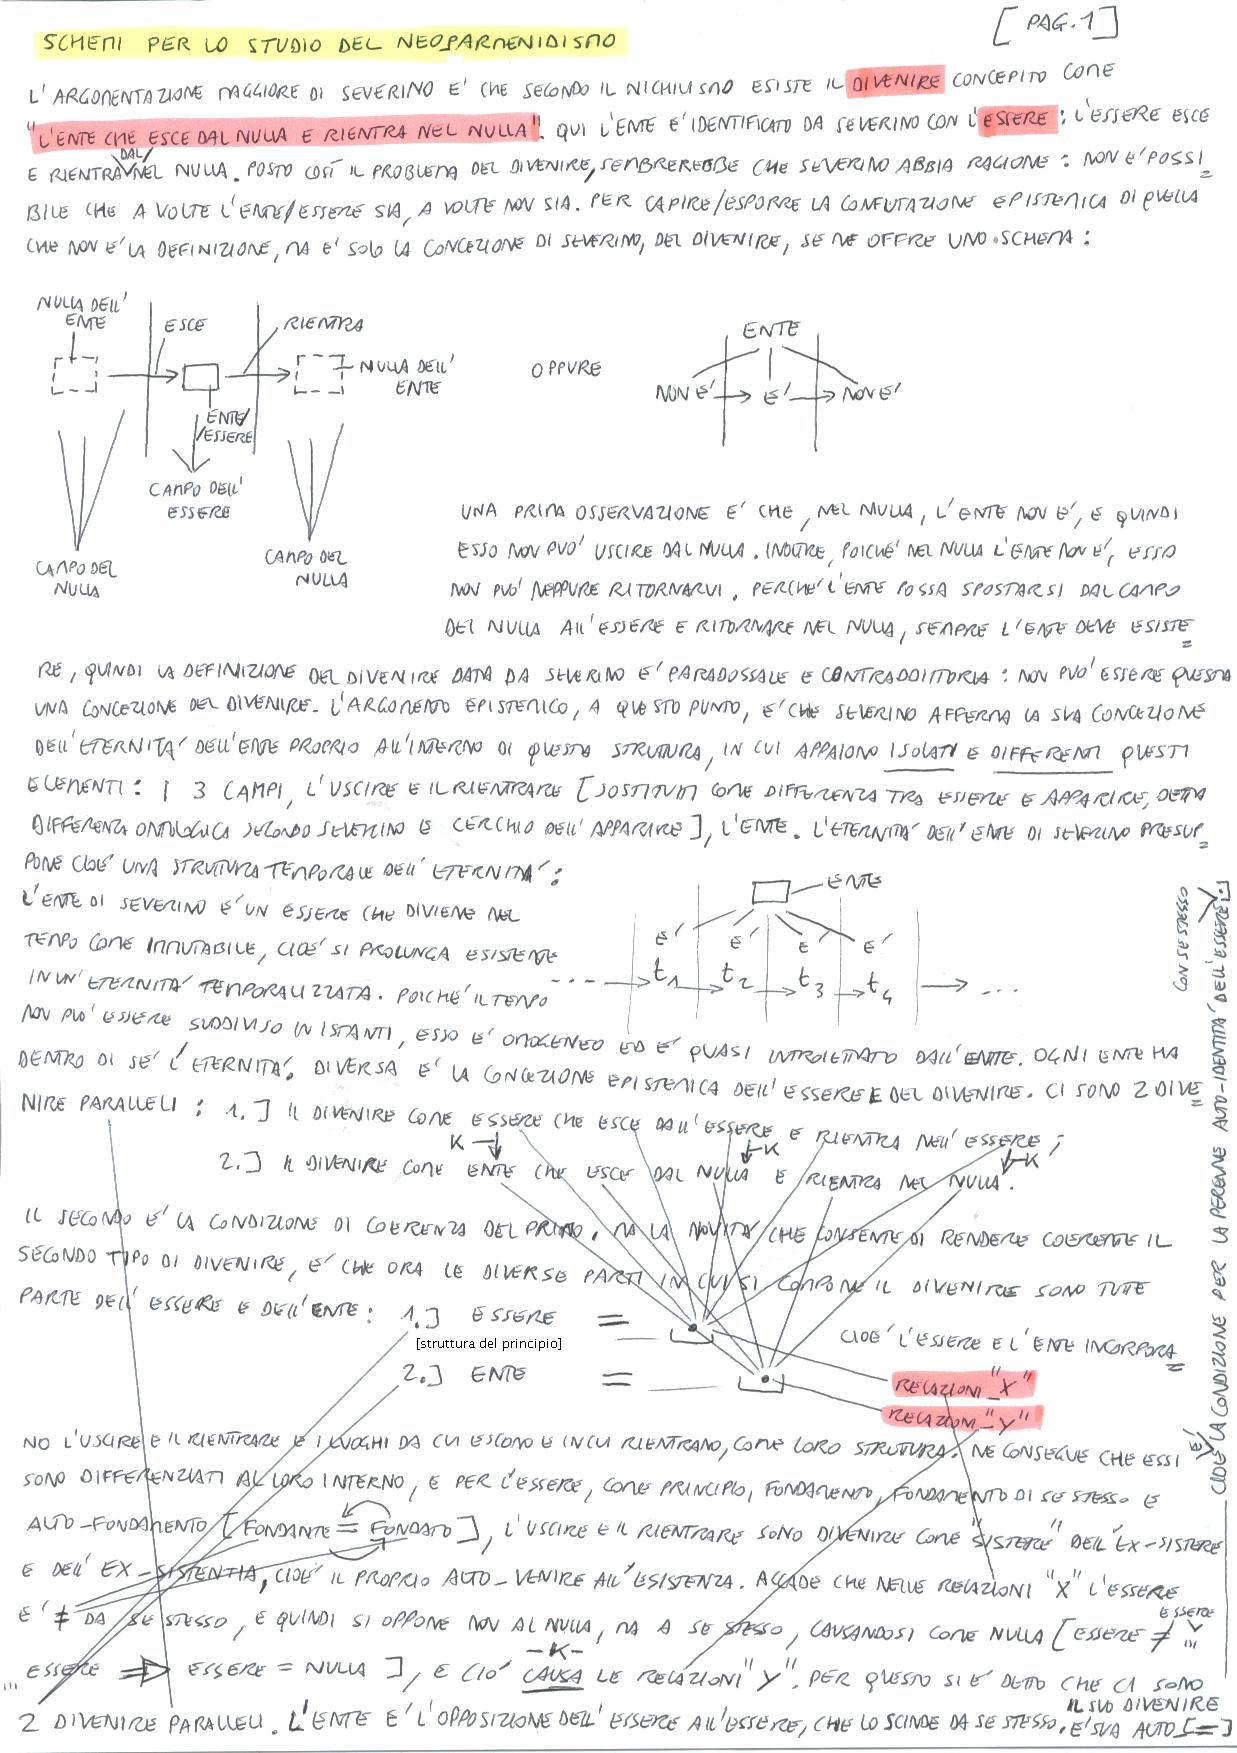 [PAG.1]
SCHEMI PER LO STUDIO DEL NEOPARMENIDISMO
L'ARGOMENTAZIONE MAGGIORE DI SEVERINO E' CHE SECONDO IL NICHILISMO ESISTE IL DIVENIRE CONCEPITO COME
"L'ENTE CHE ESCE DAL NULLA E RIENTRA NEL NULLA". QUI L'ENTE E' IDENTIFICATO DA SEVERINO CON L'ESSERE: L'ESSERE ESCE
DAL/
E RIENTRA NEL NULLA. POSTO COSÍ IL PROBLEMA DEL DIVENIRE, SEMBREREBBE CHE SEVERINO ABBIA RAGIONE: NON E' POSSI
BILE CHE A VOLTE L'ENTE/ESSERE SIA, A VOLTE NON SIA. PER CAPIRE/ESPORRE LA CONFUTAZIONE EPISTEMICA DI QUELLA
CHE NON E' LA DEFINIZIONE, MA E' SOLO LA CONCEZIONE DI SEVERINO, DEL DIVENIRE, SE NE OFFRE UNO SCHEMA:
NULLA DELL'
ENTE
ESCE
RIENTRA
NULLA DELL'
ENTE
ENTE/
/ESSERE
CAMPO DELL'
ESSERE
CAMPO DEL
NULLA
CAMPO DEL
NULLA
OPPURE
ENTE
NON E' → E' → NON E'
UNA PRIMA OSSERVAZIONE E' CHE, NEL NULLA, L'ENTE NON E', E QUINDI
ESSO NON PUO' USCIRE DAL NULLA. INOLTRE, POICHE' NEL NULLA L'ENTE NON E', ESSO
NON PUO' NEPPURE RITORNARVI. PERCHE' L'ENTE POSSA SPOSTARSI DAL CAMPO
DEL NULLA ALL'ESSERE E RITORNARE NEL NULLA, SEMPRE L'ENTE DEVE ESISTE
RE, QUINDI LA DEFINIZIONE DEL DIVENIRE DATA DA SEVERINO E' PARADOSSALE E CONTRADDITTORIA: NON PUO' ESSERE QUESTA
UNA CONCEZIONE DEL DIVENIRE. L'ARGOMENTO EPISTEMICO, A QUESTO PUNTO, E' CHE SEVERINO AFFERMA LA SUA CONCEZIONE
DELL'ETERNITA' DELL'ENTE PROPRIO ALL'INTERNO DI QUESTA STRUTTURA, IN CUI APPAIONO ISOLATI E DIFFERENTI QUESTI
ELEMENTI: I 3 CAMPI, L'USCIRE E IL RIENTRARE [SOSTITUITI COME DIFFERENZA TRA ESSERE E APPARIRE, DETTA
DIFFERENZA ONTOLOGICA SECONDO SEVERINO E CERCHIO DELL'APPARIRE], L'ENTE. L'ETERNITA' DELL'ENTE DI SEVERINO PRESUP
PONE CIOE' UNA STRUTTURA TEMPORALE DELL'ETERNITA':
L'ENTE DI SEVERINO E' UN ESSERE CHE DIVIENE NEL
TEMPO COME IMMUTABILE, CIOE' SI PROLUNGA ESISTENTE
IN UN'ETERNITA' TEMPORALIZZATA. POICHE' IL TEMPO
ENTE
E' E' E' E'
... → t1 → t2 → t3 → t4 → ...
NON PUO' ESSERE SUDDIVISO IN ISTANTI, ESSO E' OMOGENEO ED E' QUASI INTROIETTATO DALL'ENTE. OGNI ENTE HA
DENTRO DI SE' L'ETERNITA'. DIVERSA E' LA CONCEZIONE EPISTEMICA DELL'ESSERE E DEL DIVENIRE. CI SONO 2 DIVE
NIRE PARALLELI: 1.] IL DIVENIRE COME ESSERE CHE ESCE DALL'ESSERE E RIENTRA NELL'ESSERE;
K K K
2.] IL DIVENIRE COME ENTE CHE ESCE DAL NULLA E RIENTRA NEL NULLA.
IL SECONDO E' LA CONDIZIONE DI COERENZA DEL PRIMO. MA LA NOVITA' CHE CONSENTE DI RENDERE COERENTE IL
SECONDO TIPO DI DIVENIRE, E' CHE ORA LE DIVERSE PARTI IN CUI SI COMPONE IL DIVENIRE SONO TUTTE
PARTE DELL'ESSERE E DELL'ENTE: 1.] ESSERE =
[struttura del principio]
2.] ENTE =
CIOE' L'ESSERE E L'ENTE INCORPORA
RELAZIONI_"X"
RELAZIONI_"Y"
NO L'USCIRE E IL RIENTRARE E I LUOGHI DA CUI ESCONO E IN CUI RIENTRANO, COME LORO STRUTTURA. NE CONSEGUE CHE ESSI
SONO DIFFERENZIATI AL LORO INTERNO, E PER L'ESSERE, COME PRINCIPIO, FONDAMENTO, FONDAMENTO DI SE STESSO E
AUTO-FONDAMENTO [FONDANTE = FONDATO], L'USCIRE E IL RIENTRARE SONO DIVENIRE COME "SISTERE" DELL'EX-SISTERE
E DELL'EX-SISTENTIA, CIOE' IL PROPRIO AUTO-VENIRE ALL'ESISTENZA. ACCADE CHE NELLE RELAZIONI "X" L'ESSERE
E' ≠ DA SE STESSO, E QUINDI SI OPPONE NON AL NULLA, MA A SE STESSO, CAUSANDOSI COME NULLA [ESSERE ≠ ESSERE ...
-K-
... ESSERE ⇒ ESSERE = NULLA], E CIO' CAUSA LE RELAZIONI "Y". PER QUESTO SI E' DETTO CHE CI SONO
2 DIVENIRE PARALLELI. L'ENTE E' L'OPPOSIZIONE DELL'ESSERE ALL'ESSERE, CHE LO SCINDE DA SE STESSO, E' SUA AUTO[=]
IL SUO DIVENIRE
CIOE' LA CONDIZIONE PER LA PERENNE AUTO-IDENTITA' DELL'ESSERE
E'
CON SE STESSO